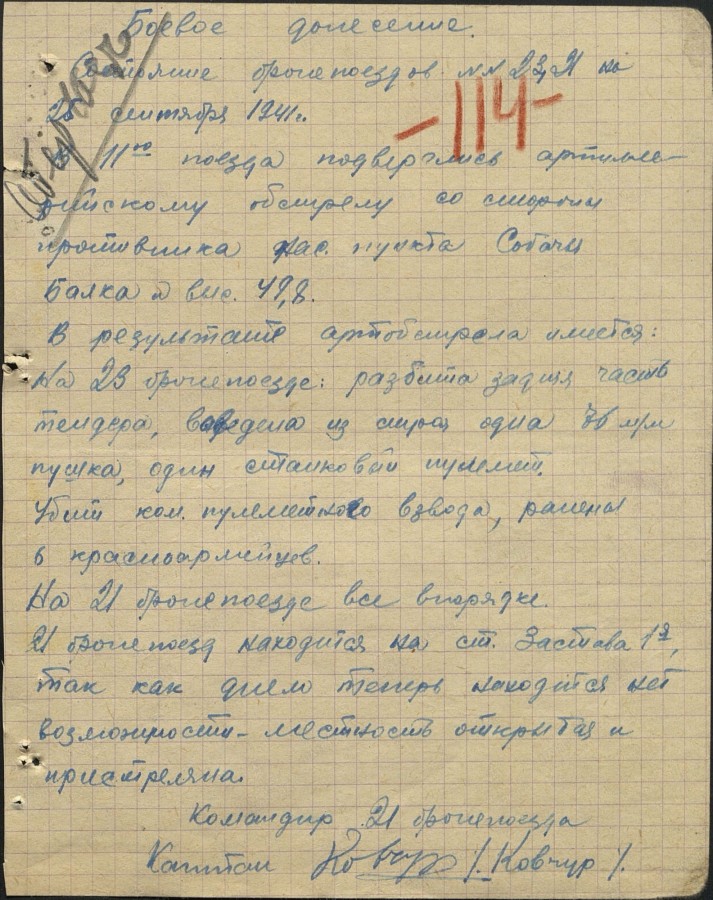 Боевое донесение.
Состояние бронепоездов NN 23, 21 на
25 сентября 1941г.
-114-
В 11⁰⁰ поезда подверглись артилле-
рийскому обстрелу со стороны
противника нас. пункта Собачы
Балка и выс. 49,8.
В результате артобстрела имеется:
На 23 бронепоезде: разбита задняя часть
тендера, выведена из строя одна 76 м/м
пушка, один станковый пулемет.
Убит ком. пулеметного взвода, ранены
6 красноармейцев.
На 21 бронепоезде все впорядке.
21 бронепоезд находится на ст. Застава 1ᵃ,
так как днем теперь находится нет
возможности - местность открытая и
пристреляна.
Командир 21 бронепоезда
Капитан Ковчур /. Ковчур /.